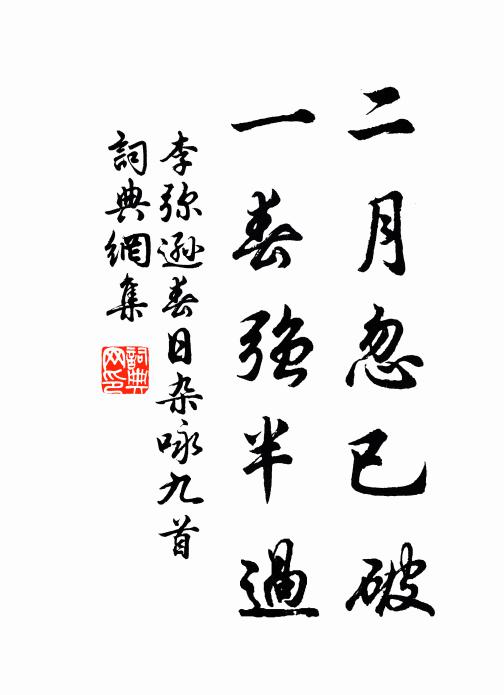 二月忽已破
一春強半過
李弥遜春日杂咏九首
詞典網集
詞典网印